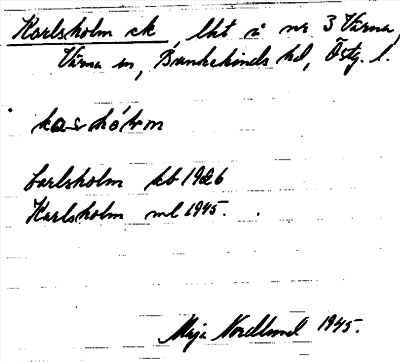 Karlsholm ck, lht å nr 3 Värna,
Värna sn, Bankekinds hd, Östg. l.
Carlsholm kb 1926
Karlsholm ml 1945.
Maja Nordlund 1945.